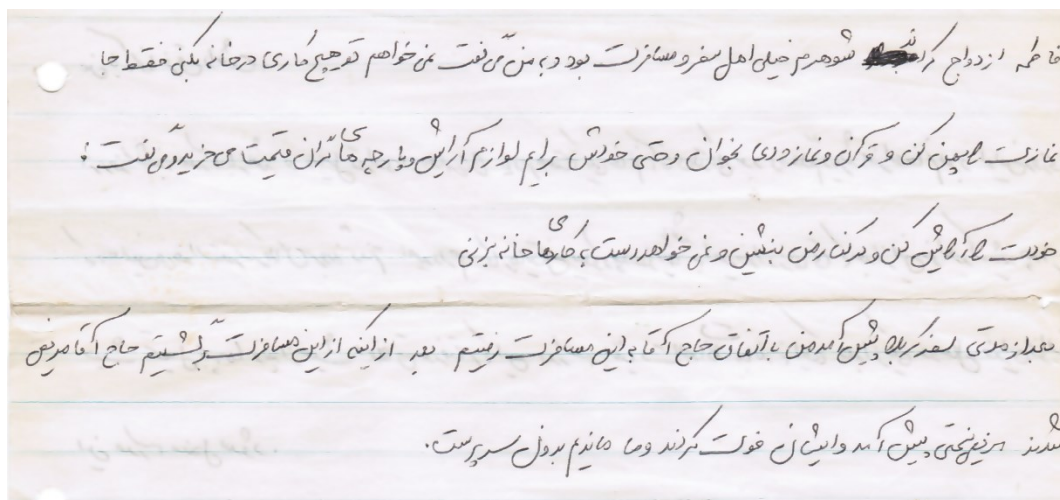 فاطمه ازدواج کردند شوهرم خیلی اهل سفر و مسافرت بود و به من می گفت نمی خواهم تو هیچ کاری در خانه بکنی فقط جا
نمازت را پهن کن و قرآن و نماز و دعا بخوان و حتی خودش برایم لوازم آرایش و پارچه های گران قیمت می خرید و می گفت :
خودت را آرایش کن و در کنار من بنشین و نمی خواهد دست به کارهای خانه بزنی
بعد از مدتی سفر کربلا پیش آمد من با اتفاق حاج آقا به این مسافرت رفتیم بعد از اینکه از این مسافرت برگشتیم حاج آقا مریض
شدند پیش آمد و ایشان فوت کردند و ما ماندیم بدون سرپرست.